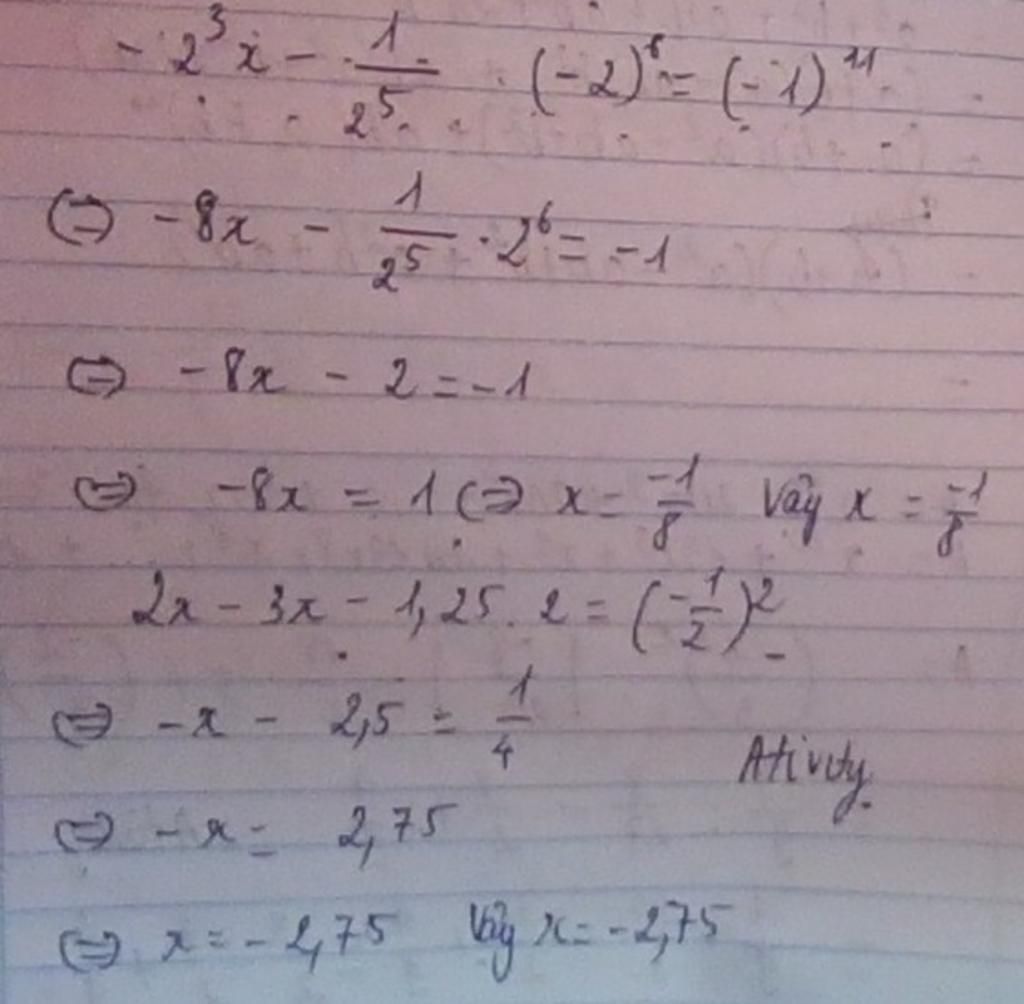 -2³x - 1/2⁵ . (-2)⁶ = (-1)¹¹
(=) -8x - 1/2⁵ . 2⁶ = -1
(=) -8x - 2 = -1
(=) -8x = 1 (=) x = -1/8 Vậy x = -1/8
2x - 3x - 1,25 . 2 = (-1/2)²
(=) -x - 2,5 = 1/4
Ativity.
(=) -x = 2,75
(=) x = -2,75 Vậy x = -2,75